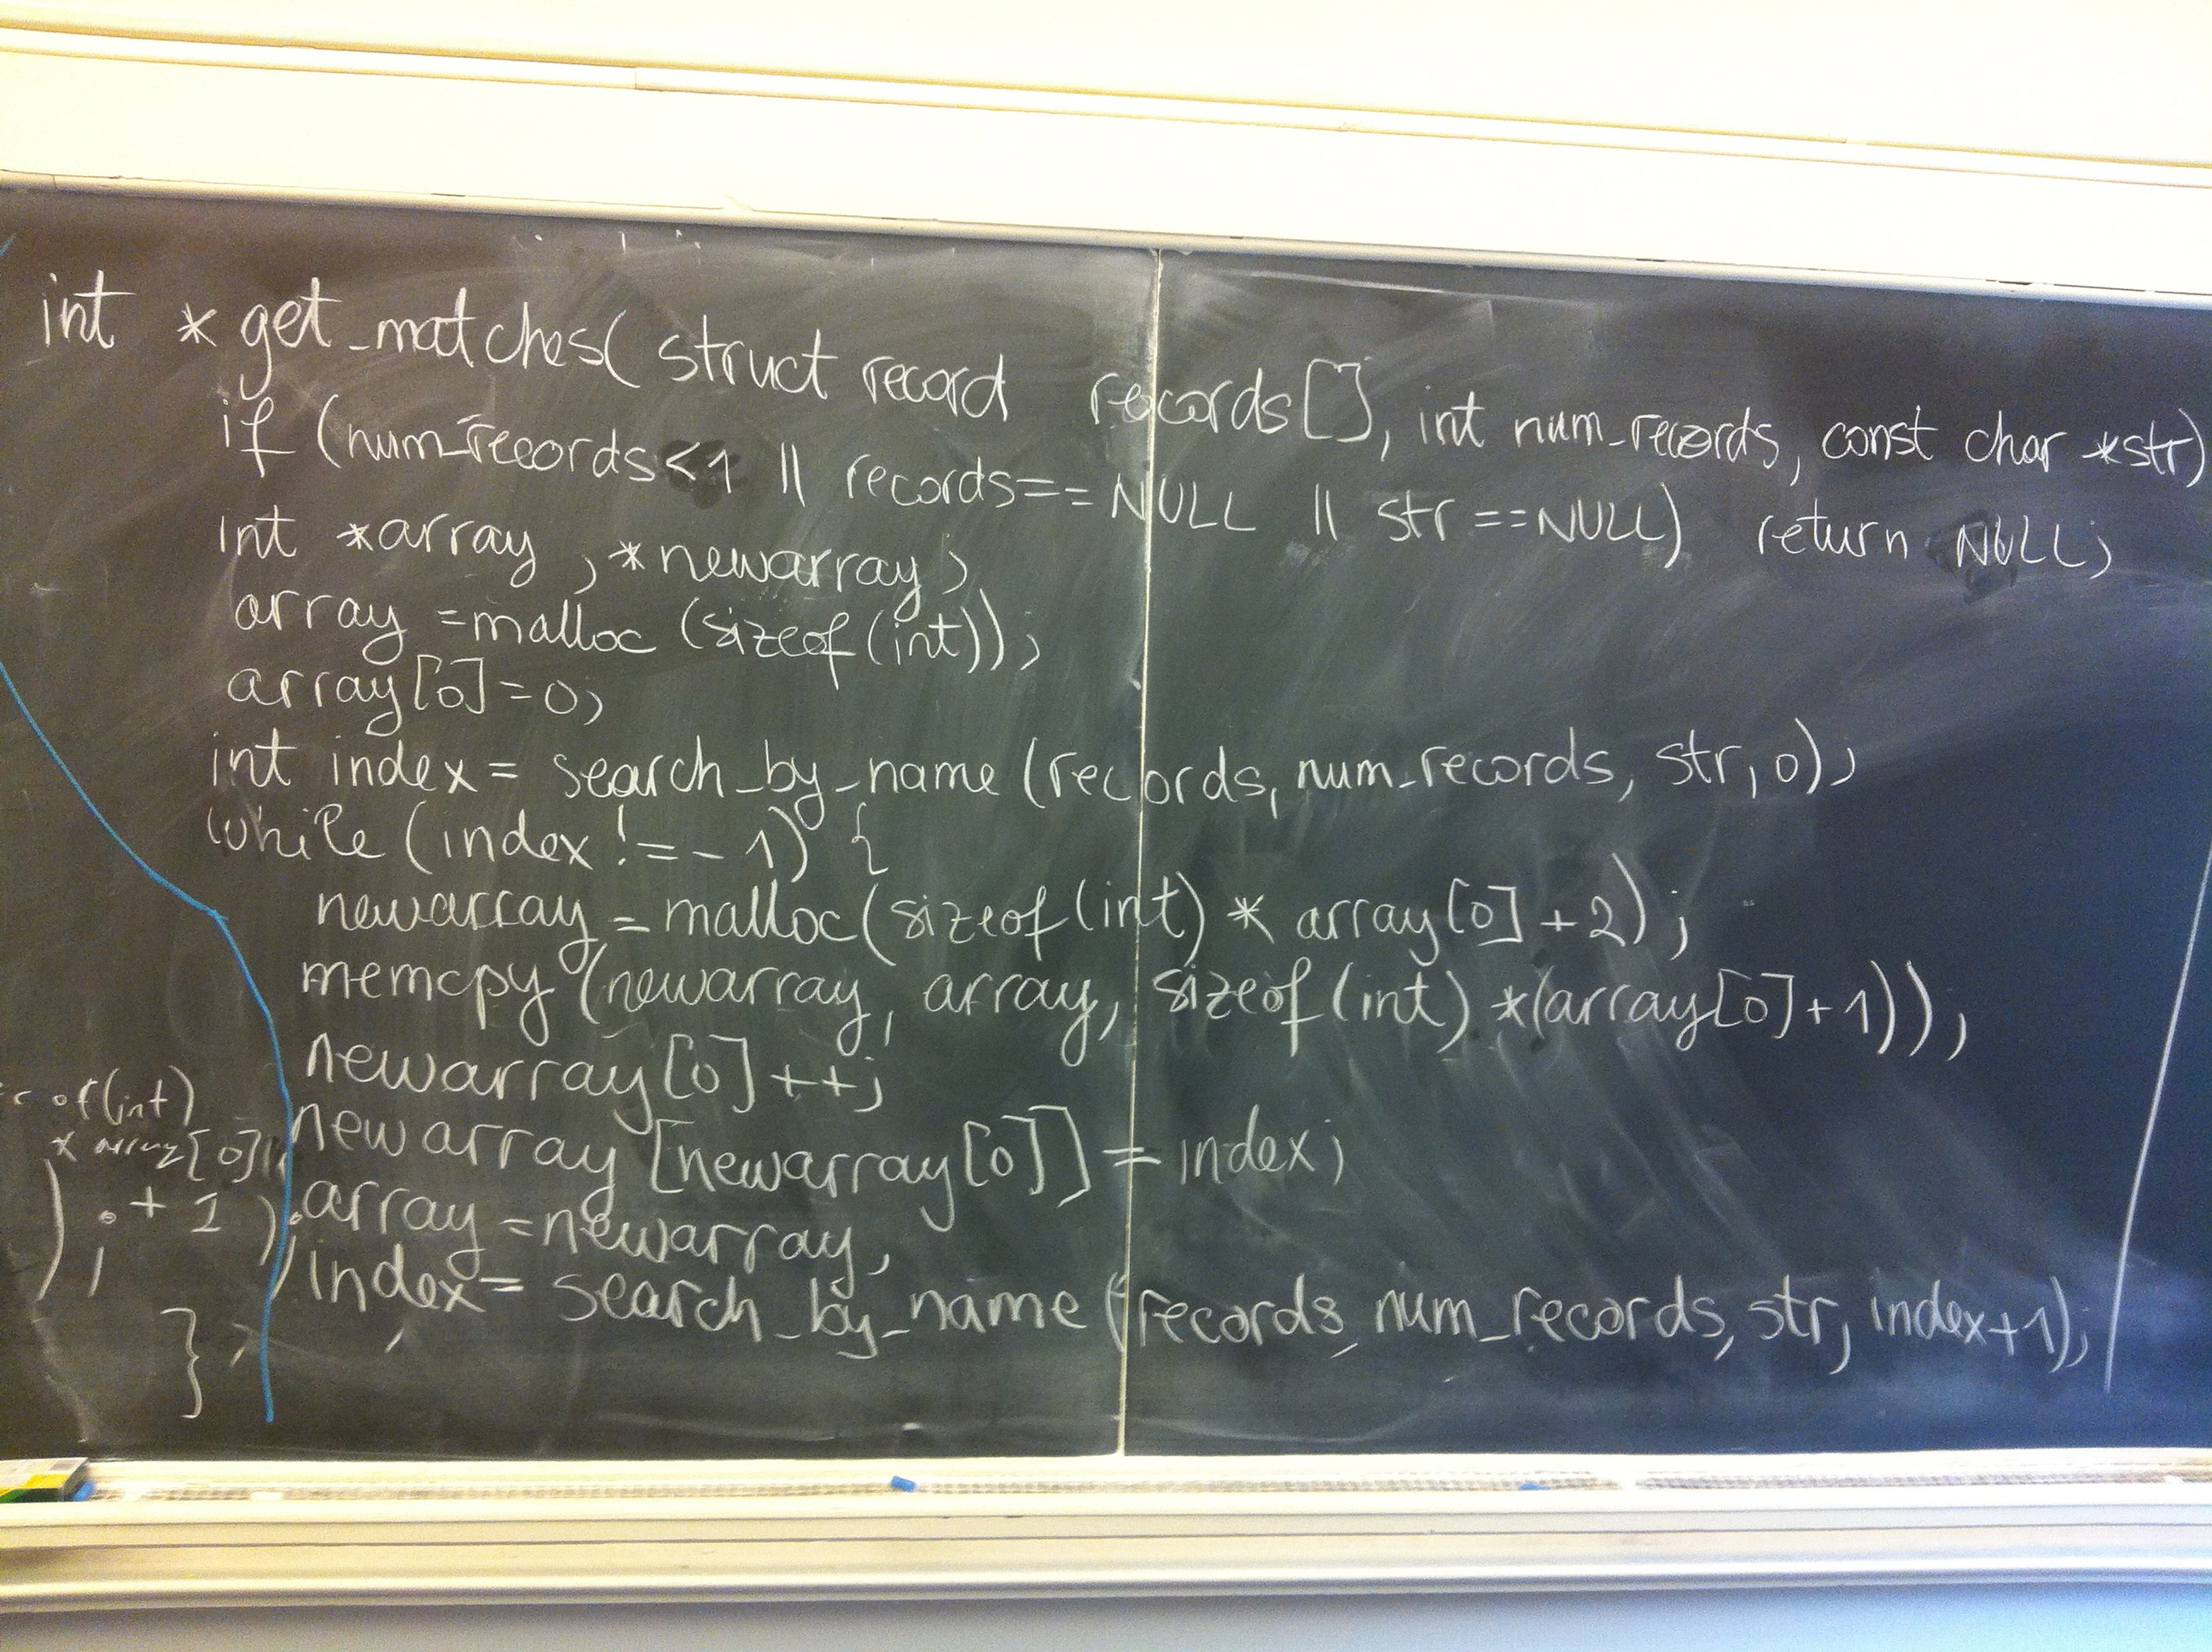 int *get_matches( struct record records[], int num_records, const char *str)
if (num_records<1 || records==NULL || str==NULL) return NULL;
int *array, *newarray;
array =malloc (sizeof(int));
array[0]=0;
int index= search_by_name (records, num_records, str, 0);
while (index != -1) {
newarray = malloc(sizeof(int) * array[0]+2);
memcpy (newarray, array, sizeof(int) *(array[0]+1));
newarray[0]++;
newarray [newarray[0]] = index;
array =newarray;
index= search_by_name (records, num_records, str, index+1);
of(int)
* array[0]
) ; + 1 );
}